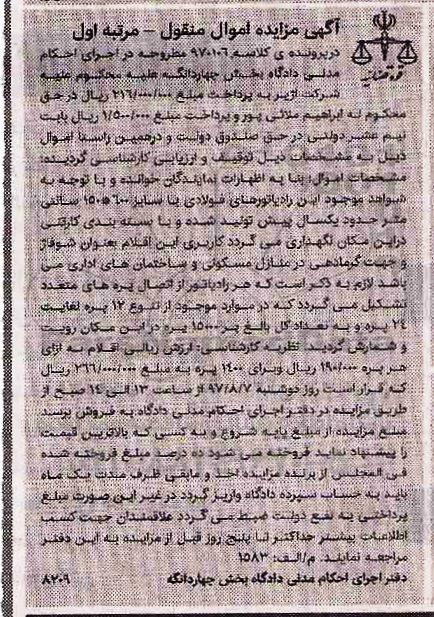 آگهی مزایده اموال منقول – مرتبه اول
در پرونده ی کلاسه ۹۷۰۱۰۶ مطروحه در اجرای احکام
مدنی دادگاه بخش چهاردانگه علیه محکوم علیه
شرکت آژیر به پرداخت مبلغ ۲۱۶/۰۰۰/۰۰۰ ریال در حق
محکوم له ابراهیم ملائی پور و پرداخت مبلغ ۱/۵۰۰/۰۰۰ ریال بابت
نیم عشر دولتی در حق صندوق دولت و درهمین راستا اموال
ذیل به مشخصات ذیل توقیف و ارزیابی کارشناسی گردید:
مشخصات اموال: بنا به اظهارات نمایندگان خوانده و با توجه به
شواهد موجود این رادیاتورهای فولادی با سایز ۶۰۰*۱۵۰ سانتی
متر حدود یکسال پیش تولید شده و با بسته بندی کارتنی
دراین مکان نگهداری می گردد کاربری این اقلام بعنوان شوفاژ
و جهت گرمادهی در منازل مسکونی و ساختمان های اداری می
باشد لازم به ذکر است که هر رادیاتور از اتصال پره های متعدد
تشکیل می گردد که در موارد موجود از تنوع ۱۲ پره لغایت
۲۴ پره و به تعداد کل بالغ بر ۱۵۰۰۰ پره در این مکان رویت
و شمارش گردید. نظریه کارشناسی: ارزش ریالی اقلام به ازای
هر پره ۱۹۰/۰۰۰ ریال وبرای ۱۴۰۰ پره به مبلغ ۲۶۶/۰۰۰/۰۰۰ ریال
که قرار است روز دوشنبه ۹۷/۸/۷ از ساعت ۱۳ الی ۱۴ صبح از
طریق مزایده در دفتر اجرای احکام مدنی دادگاه به فروش برسد
مبلغ مزایده از مبلغ پایه شروع و به کسی که بالاترین قیمت
را پیشنهاد نماید فروخته می شود ده درصد مبلغ فروخته شده
فی المجلس از برنده مزایده اخذ و مابقی ظرف مدت یک ماه
باید به حساب سپرده دادگاه واریز گردد در غیر این صورت مبلغ
پرداختی به نفع دولت ضبط می گردد علاقمندان جهت کسب
اطلاعات بیشتر حداکثر تا پنج روز قبل از مزایده به این دفتر
مراجعه نمایند. م/الف: ۱۵۸۳
دفتر اجرای احکام مدنی دادگاه بخش چهاردانگه
۸۲۰۹